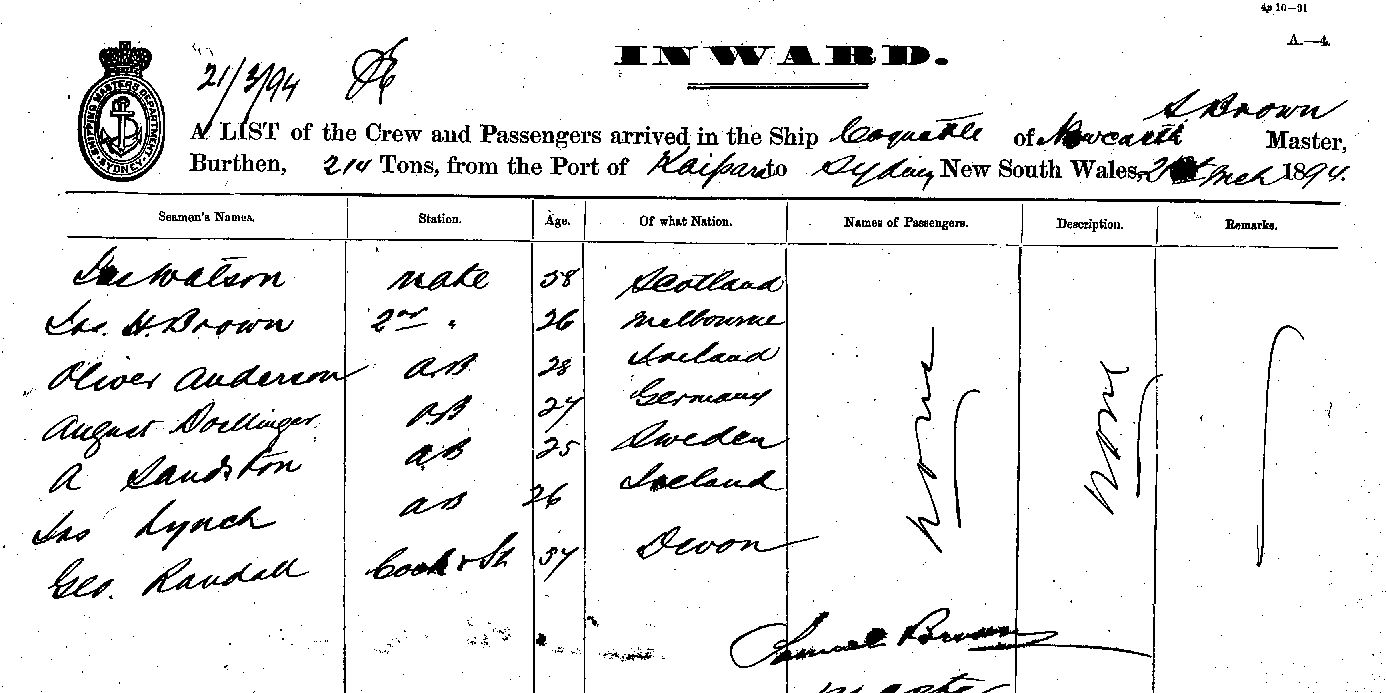 4p 10—91
A.—4.
INWARD.
21/3/94
S Brown
A LIST of the Crew and Passengers arrived in the Ship Coquette of Newcastle Master,
Burthen, 214 Tons, from the Port of Kaipara to Sydney New South Wales, 21st Mch 1894.
SHIPPING MASTER'S DEPARTMENT SYDNEY
Seamen's Names. Station. Age. Of what Nation. Names of Passengers. Description. Remarks.
Jas Watson mate 58 Scotland
Jas. H. Brown 2nd " 26 Melbourne
Oliver Anderson AB 28 Ireland
August Doellinger AB 27 Germany
A Sandston AB 25 Sweden
Jas Lynch AB 26 Ireland
Geo. Randall Cook & St 37 Devon
None
None
Samuel Brown
Master